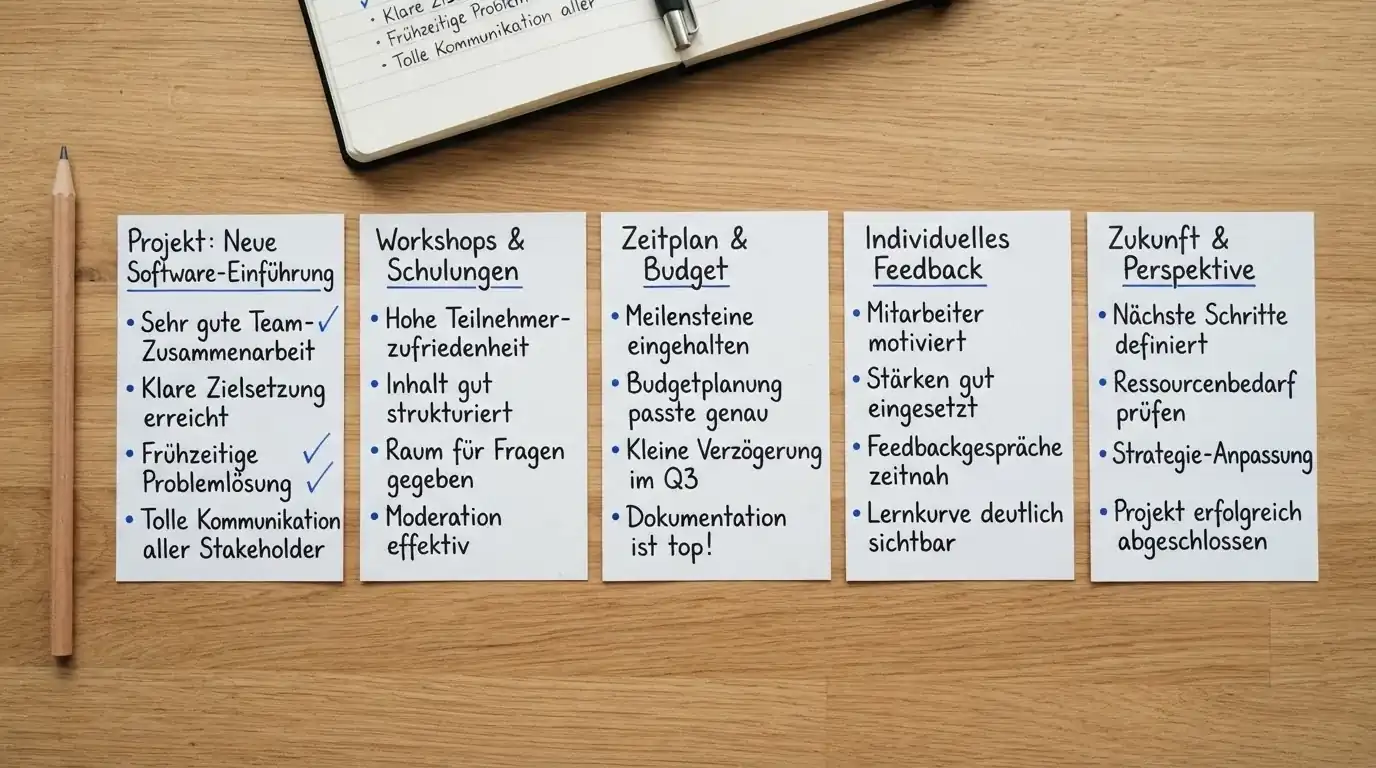 Klare
Frühzeitige
Tolle Kommunikation aller
Projekt: Neue
Software-Einführung
• Sehr gute Team- ✓
Zusammenarbeit
• Klare Zielsetzung
erreicht
• Frühzeitige ✓
Problemlösung ✓
• Tolle Kommunikation
aller Stakeholder
Workshops &
Schulungen
• Hohe Teilnehmer-
zufriedenheit
• Inhalt gut
strukturiert
• Raum für Fragen
gegeben
• Moderation
effektiv
Zeitplan &
Budget
• Meilensteine
eingehalten
• Budgetplanung
passte genau
• Kleine Verzögerung
im Q3
• Dokumentation
ist top!
Individuelles
Feedback
• Mitarbeiter
motiviert
• Stärken gut
eingesetzt
• Feedbackgespräche
zeitnah
• Lernkurve deutlich
sichtbar
Zukunft &
Perspektive
• Nächste Schritte
definiert
• Ressourcenbedarf
prüfen
• Strategie-Anpassung
• Projekt erfolgreich
abgeschlossen